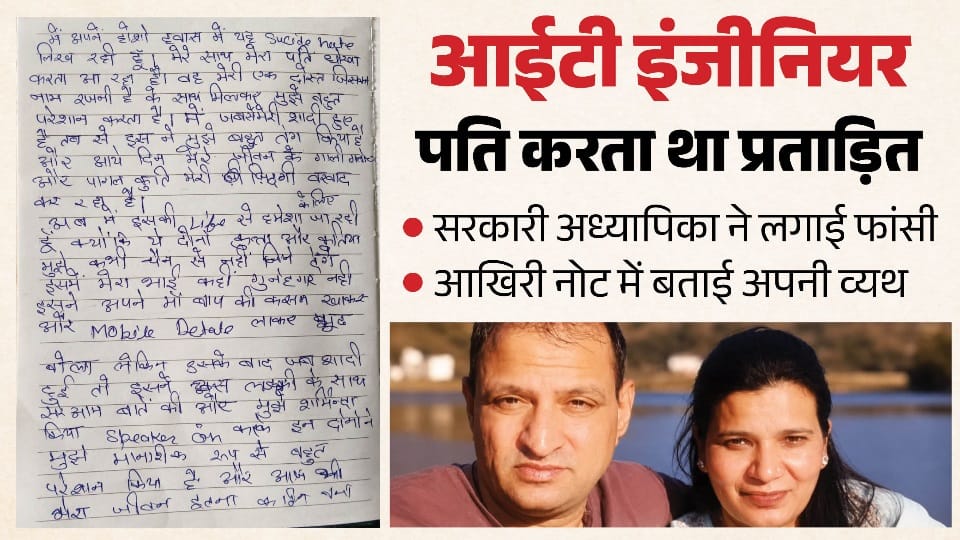 मैं अपने होशो हवास में यह Sucide note
लिख रही हूँ। मेरे साथ मेरा पति धोखा
करता आ रहा है। वह मेरी एक दोस्त जिसका
नाम रजनी है के साथ मिलकर मुझे बहुत
परेशान करता है। मैं जबसे मेरी शादी हुई
है तब से इस ने मुझे बहुत तंग किया है
और आये दिन मेरे जीवन के
और पागल कुति मेरी जिन्दगी बरबाद
कर रहा है।
अब मैं इसकी Life से हमेशा के लिए जा रही
हूँ क्योंकि ये दोनों कुत्ता और कुतिया
मुझे कभी चैन से नहीं जिने देंगे
इसमें मेरा भाई कही गुनहगार नही
इसने अपने माँ बाप की कसम खाकर
और Mobile Detale लाकर झूठ
बोला लेकिन इसके बाद जब शादी
हुई तो इसने लड़की के साथ
सरे आम बातें की और मुझे शर्मिन्दा
किया Speaker on करके इन दोनो ने
मुझे मानशिक रूप से बहुत
परेशान किया है और आज भी
मेरा जीवन इतना कठिन बना
आईटी इंजीनियर
पति करता था प्रताड़ित
• सरकारी अध्यापिका ने लगाई फांसी
• आखिरी नोट में बताई अपनी व्यथ